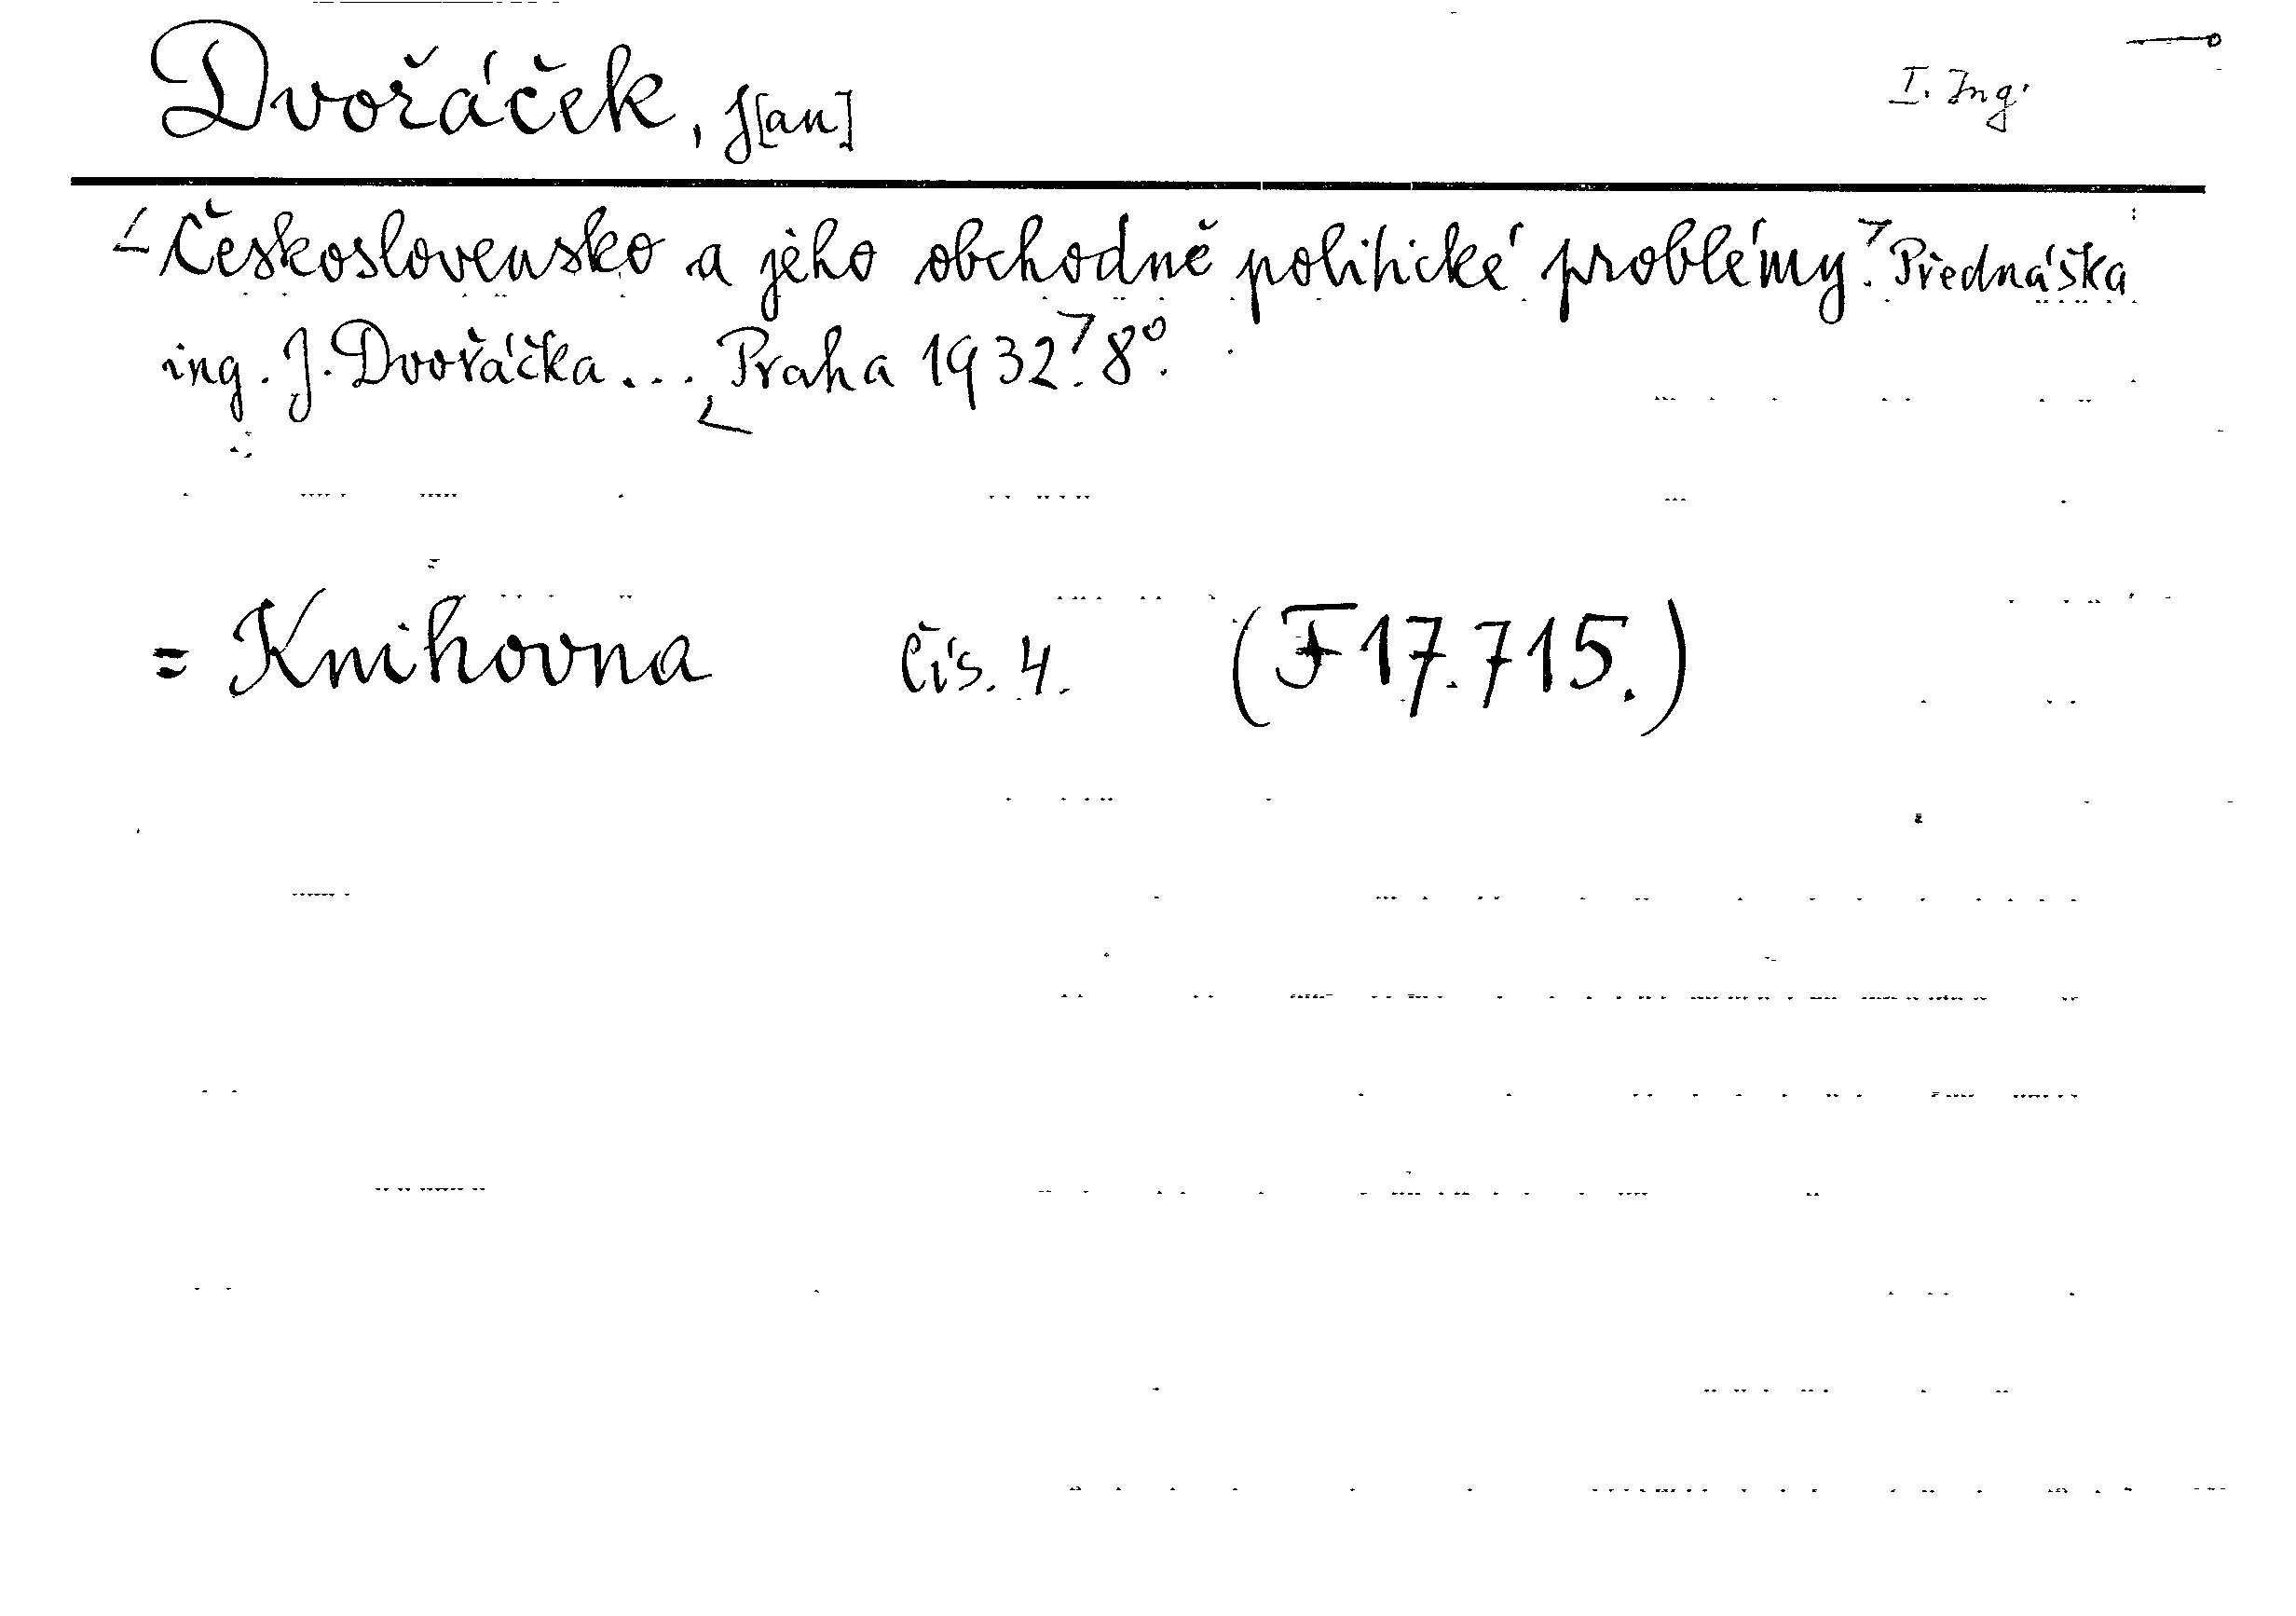 Dvořáček, J[an] I. Ing.
<Československo a jeho obchodně politické problémy.> Přednáška
ing. J. Dvořáčka... <Praha 1932.> 8°.
= Knihovna čís. 4. (F 17.715.)